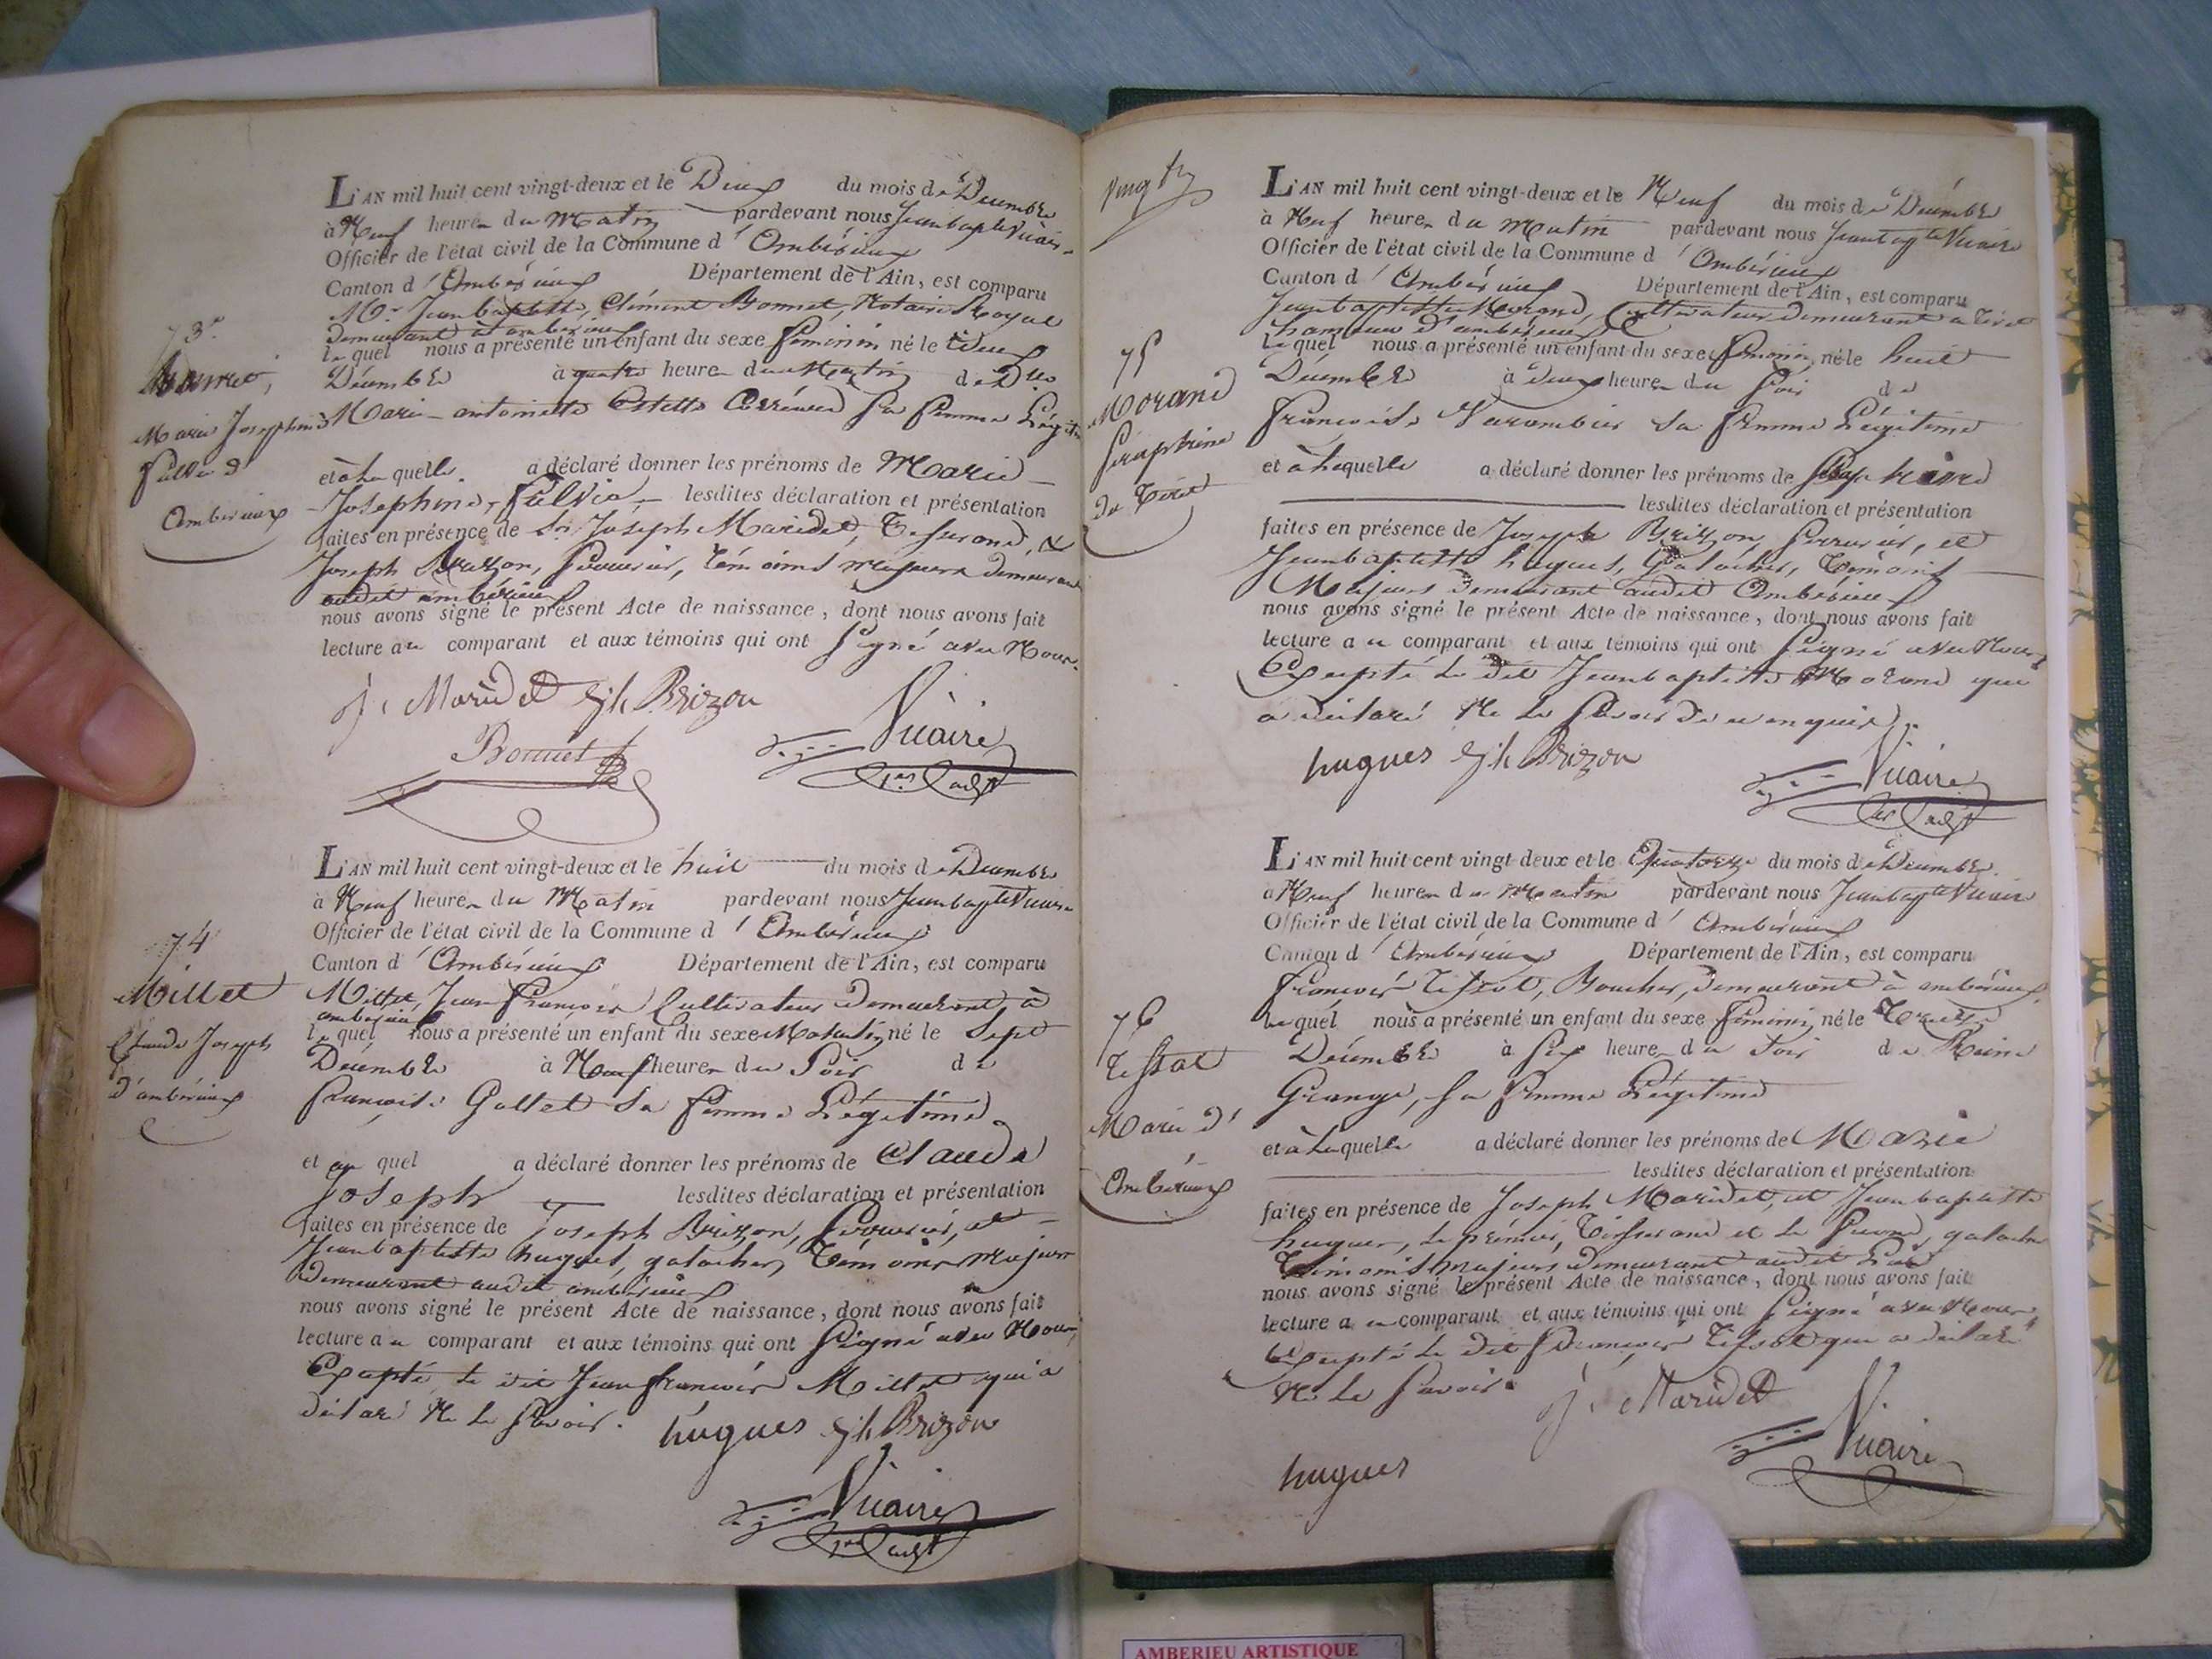 L'AN mil huit cent vingt-deux et le Deux du mois de Décembre
à Neuf heures du Matin pardevant nous Jean baptte Vicaire
Officier de l'état civil de la Commune d' Ambérieux
Canton d' Ambérieux Département de l'Ain, est comparu
Mr. Jean baptiste Clément Bonnet, Notaire Royal
demeurant à ambérieux
lequel nous a présenté un enfant du sexe féminin né le deux
Décembre à quatre heures du Matin de Dme
Marie-antoinette Estelle sa femme Légitime
et à laquelle a déclaré donner les prénoms de Marie-
Josephine-fulvie- lesdites déclaration et présentation
faites en présence de Sr. Joseph Maridet, Tisserand, &
Joseph Brizon, Serrurier, témoins majeurs demeurant
audit ambérieux
nous avons signé le présent Acte de naissance, dont nous avons fait
lecture au comparant et aux témoins qui ont signé avec Nous.
j. Maridet jh Brizon
Bonnet Vicaire
73e
Bonnet,
Marie Josephine
fulvie d'
Ambérieux
L'AN mil huit cent vingt-deux et le huit du mois de Décembre
à Neuf heures du Matin pardevant nous Jean baptte Vicaire
Officier de l'état civil de la Commune d' Ambérieux
Canton d' Ambérieux Département de l'Ain, est comparu
Millet, Jean François Cultivateur demeurant à
ambérieux
lequel nous a présenté un enfant du sexe Masculin né le Sept
Décembre à Neuf heures du Soir de
françoise Gallet sa femme Légitime
et auquel a déclaré donner les prénoms de Claude
Joseph lesdites déclaration et présentation
faites en présence de Joseph Brizon, Serrurier, et
Jean baptiste hugues, galocher, Témoins Majeurs
demeurant audit ambérieux
nous avons signé le présent Acte de naissance, dont nous avons fait
lecture au comparant et aux témoins qui ont Signé avec Nous,
Excepté le dit Jean françois Millet qui a
déclaré Ne le Savoir.
hugues jh Brizon
Vicaire
74
Millet
Claude Joseph
d'ambérieux
L'AN mil huit cent vingt-deux et le Neuf du mois de Décembre
à Neuf heures du matin pardevant nous Jean baptte Vicaire
Officier de l'état civil de la Commune d' Ambérieux
Canton d' Ambérieux Département de l'Ain, est comparu
Jean baptiste Morand, Cultivateur demeurant à Tiret
hameau d'ambérieux
lequel nous a présenté un enfant du sexe féminin né le huit
Décembre à deux heures du Soir de
françoise Varambier sa femme Légitime
et à laquelle a déclaré donner les prénoms de
lesdites déclaration et présentation
faites en présence de Joseph Brizon, Serrurier, et
Jean baptiste hugues, Galocher, Témoins
Majeurs demeurant audit Ambérieux
nous avons signé le présent Acte de naissance, dont nous avons fait
lecture au comparant et aux témoins qui ont Signé avec Nous
Excepté le dit Jean baptiste Morand qui
a déclaré Ne le Savoir de ce enquis.
hugues jh Brizon
Vicaire
75
Morand
Séraphine
de Tiret
L'AN mil huit cent vingt-deux et le Quatorze du mois de Décembre
à Neuf heures du Matin pardevant nous Jean baptte Vicaire
Officier de l'état civil de la Commune d' Ambérieux
Canton d' Ambérieux Département de l'Ain, est comparu
françois Tissot, Boucher, demeurant à ambérieux
lequel nous a présenté un enfant du sexe féminin né le Treize
Décembre à Six heures du Soir de Reine
Grange, sa femme Légitime
et à laquelle a déclaré donner les prénoms de Marie
lesdites déclaration et présentation
faites en présence de Joseph Maridet, et Jean baptiste
hugues, le prémier, Tisserand et le Second, galocher
Témoins majeurs demeurant audit Lieu
nous avons signé le présent Acte de naissance, dont nous avons fait
lecture au comparant et aux témoins qui ont Signé avec Nous
Excepté le dit françois Tissot qui a déclaré
Ne le Savoir.
j. Maridet
hugues Vicaire
76
Tissot
Marie d'
Ambérieux
AMBERIEU ARTISTIQUE